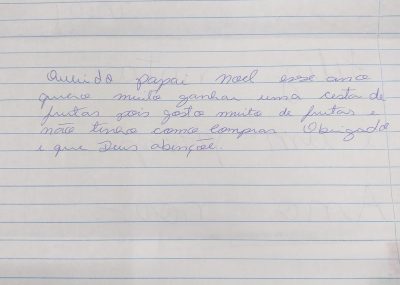 Querido papai noel esse ano
quero muito ganhar uma cesta de
frutas pois gosto muito de frutas e
não tenho como comprar. Obrigado
e que Deus abençõe.